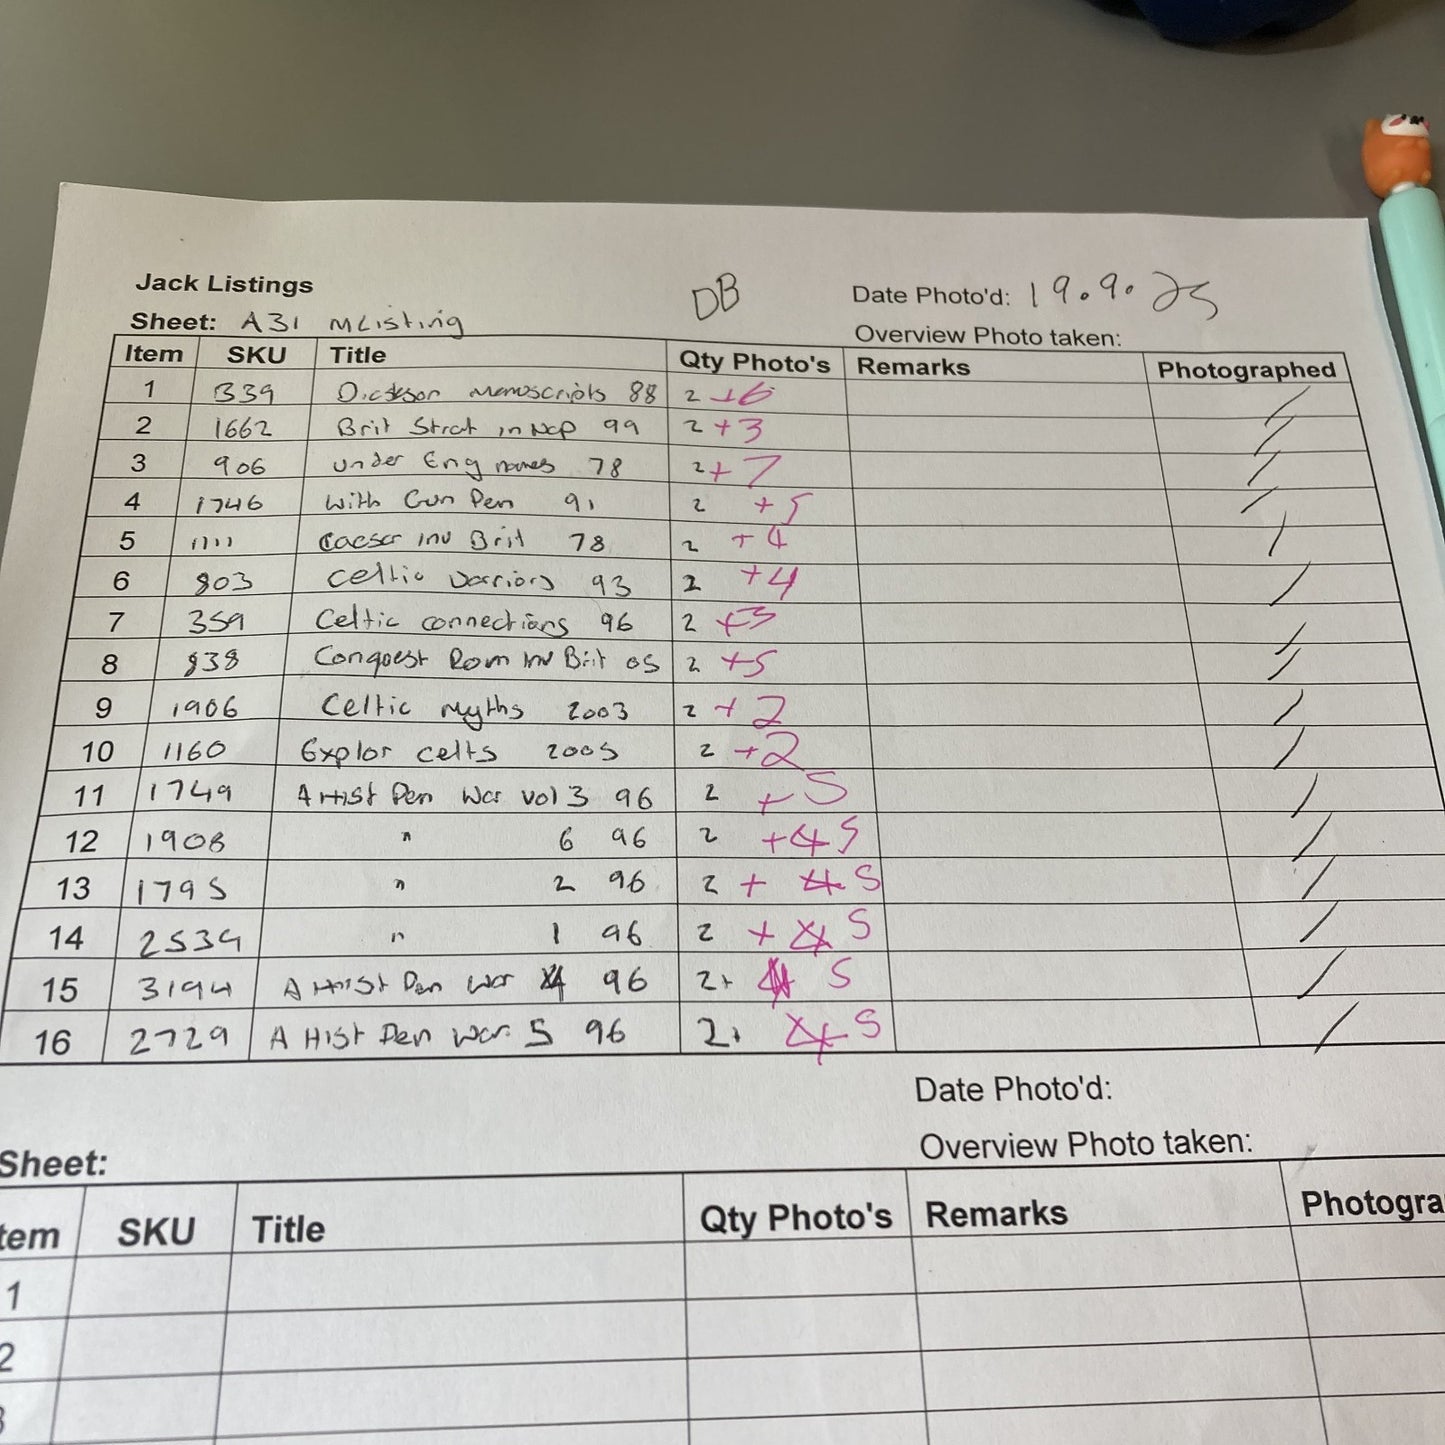 Jack Listings
DB
Date Photo'd: 19.9.25
Sheet: A31 MListing
Overview Photo taken:
Item SKU Title Qty Photo's Remarks Photographed
1 339 Manuscripts 88 2 +6 /
2 1662 Brit Strat in Nap 99 2 +3 /
3 906 under Eng names 78 2+7 /
4 1746 With Gun Pen 91 2 +5 /
5 1111 Caesar inv Brit 78 2 +4 /
6 803 Celtic Warriors 93 2 +4 /
7 359 Celtic connections 96 2 +3 /
8 838 Conquest Rom Inv Brit 05 2 +5 /
9 1906 Celtic Myths 2003 2 +2 /
10 1160 Explor celts 2005 2 +2 /
11 1749 A Hist Pen War vol 3 96 2 +5 /
12 1908 " 6 96 2 +4 5 /
13 1795 " 2 96 2 + 4 5 /
14 2539 " 1 96 2 + 4 5 /
15 3194 A Hist Pen War 4 96 2+ 4 5 /
16 2729 A Hist Pen War 5 96 2+ 4 5 /
Date Photo'd:
Overview Photo taken:
Sheet:
tem SKU Title Qty Photo's Remarks Photogra
1
2
3